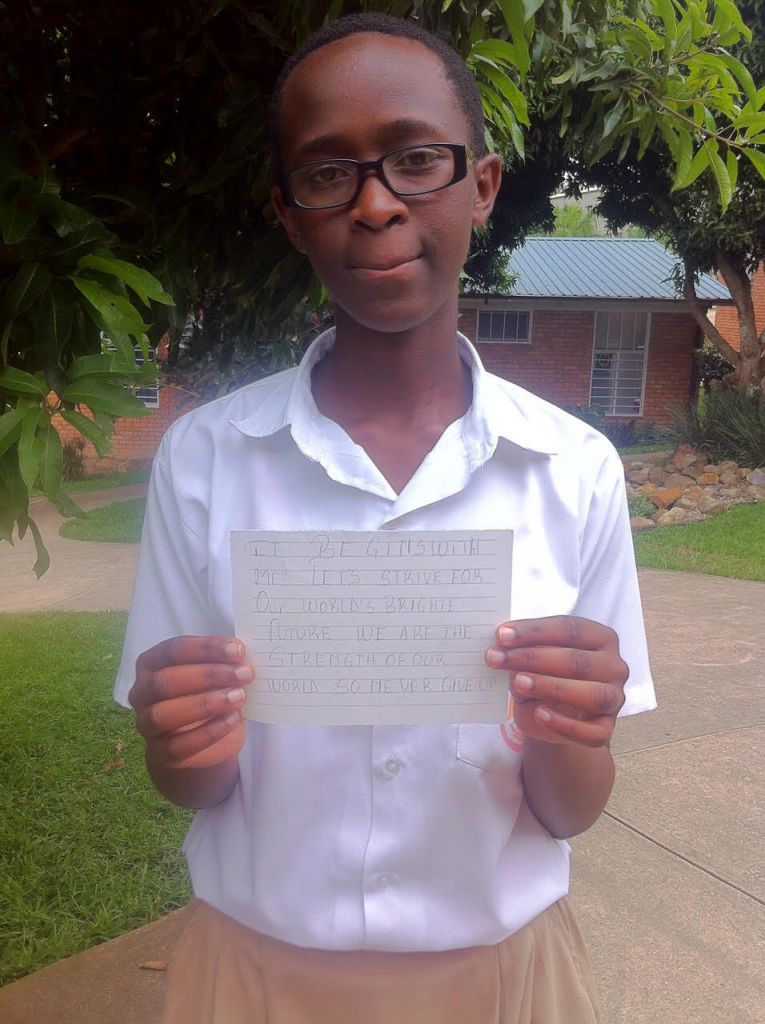 IT BEGINS WITH
ME! LET'S STRIVE FOR
OUR WORLD'S BRIGHTE
FUTURE WE ARE THE
STRENGTH OF OUR
WORLD SO NEVER GIVE UP